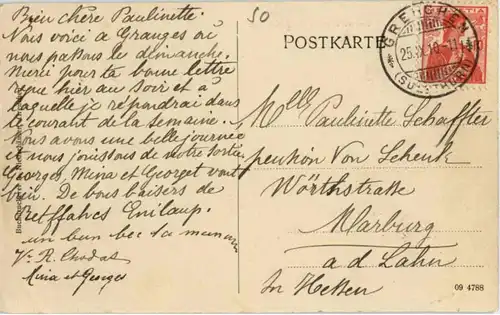 Bien chère Paulinette.
Nous voici a Granges où
nous passons le dimanche.
Merci pour ta bonne lettre
reçue hier au soir et à
laquelle je répondrai dans
le courant de la semaine.
Nous avons une belle journée
et nous jouissons de notre sortie
Georges, Mina et Georget vont
bien. De bons baisers de
un bon bec ta maman
Vve R. Chodat
Mina et Georges
50
POSTKARTE
GRENCHEN
(SOLOTHURN)
Mlle Paulinette Schaffter
pension Von Schenk
Wörthstrasse
Marburg
a d Lahn
In Hessen
09 4788